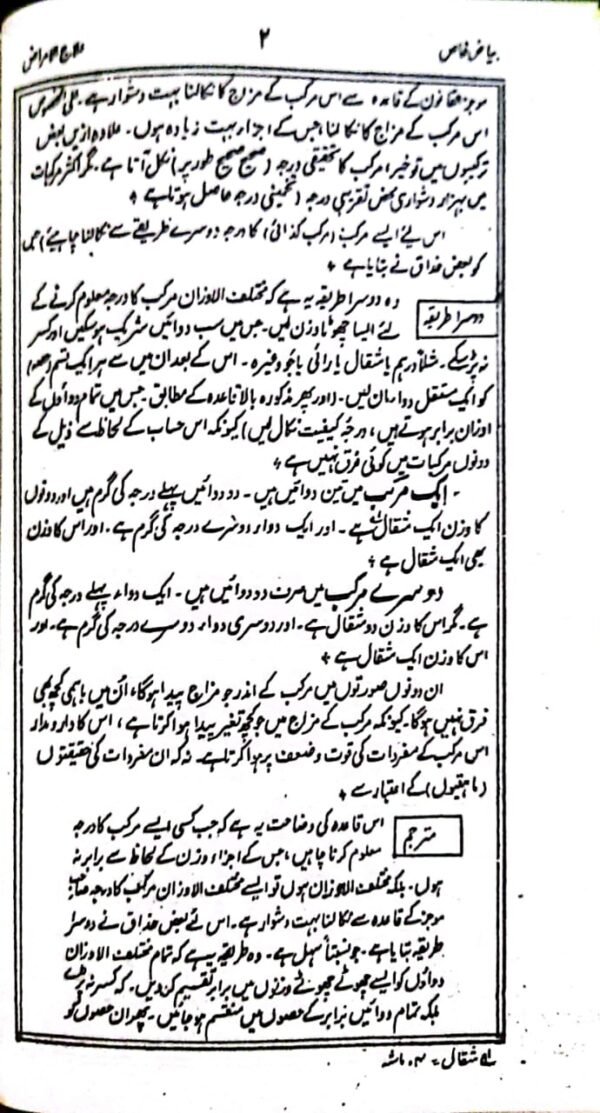 بیاض خاص
۲
علاج الامراض
موجز القانون کے قاعدہ سے اس مرکب کے مزاج کا نکالنا بہت دشوار ہے۔ علی الخصوص
اس مرکب کے مزاج کا نکالنا جس کے اجزا بہت زیادہ ہوں۔ علاوہ ازیں بعض
ترکیبوں میں تو خیر امرکب کا تحقیقی درجہ (صحیح صحیح طور پر) نکل آتا ہے۔ مگر اکثر مرکبات
میں بہزار دشواری محض تقریبی درجہ (تخمینی درجہ حاصل ہوتا ہے ؞
اس لئے ایسے مرکب (مرکب کذائی) کا درجہ دوسرے طریقے سے نکالنا چاہیئے) جس
کو بعض حذاق نے بتایا ہے ؞
دوسرا طریقہ
وہ دوسرا طریقہ یہ ہے کہ مختلف الاوزان مرکب کا درجہ معلوم کرنے کے
لئے ایسا چھوٹا وزن لیں۔ جس میں سب دوائیں شریک ہو سکیں اور کسر
نہ پڑ سکے۔ مثلاً درہم یا مثقال یا رائی یا جَو وغیرہ۔ اس کے بعد ان میں سے ہر ایک قسم (حصہ)
کو ایک مستقل دوا مان لیں۔ (اور پھر مذکورہ بالا قاعدہ کے مطابق۔ جس میں تمام دواؤں کے
اوزان برابر ہوتے ہیں، درجۂ کیفیت نکال لیں) کیونکہ اس حساب کے لحاظ سے ذیل کے
دونوں مرکبات میں کوئی فرق نہیں ہے ؞
۔ ایک مرکب میں تین دوائیں ہیں۔ دو دوائیں پہلے درجہ کی گرم ہیں اور دونوں
کا وزن ایک مثقال ہے۔ اور ایک دواء دوسرے درجہ کی گرم ہے۔ اور اس کا وزن
بھی ایک مثقال ہے ؞
دوسرے مرکب میں صرف دو دوائیں ہیں۔ ایک دواء پہلے درجہ کی گرم
ہے۔ مگر اس کا وزن دو مثقال ہے۔ اور دوسری دواء دوسرے درجہ کی گرم ہے۔ اور
اس کا وزن ایک مثقال ہے ؞
ان دونوں صورتوں میں مرکب کے اندر جو مزاج پیدا ہوگا، اُن میں باہمی کچھ بھی
فرق نہیں ہوگا۔ کیونکہ مرکب کے مزاج میں جو کچھ تغیر پیدا ہوا کرتا ہے، اس کا دارو مدار
اس مرکب کے مفردات کی قوت و ضعف پر ہوا کرتا ہے۔ نہ کہ ان مفردات کی حقیقتوں
(ماہیتوں) کے اعتبار سے ؞
مترجم
اس قاعدہ کی وضاحت یہ ہے کہ جب کسی ایسے مرکب کا درجہ
معلوم کرنا چاہیں، جس کے اجزاء وزن کے لحاظ سے برابر نہ
ہوں۔ بلکہ مختلف الاوزان ہوں تو ایسے مختلف الاوزان مرکب کا درجہ صاحب
موجز کے قاعدہ سے نکالنا بہت دشوار ہے۔ اس لئے بعض حذاق نے دوسرا
طریقہ بتایا ہے۔ جو نسبتاً سہل ہے۔ وہ طریقہ یہ ہے کہ تمام مختلف الاوزان
دواؤں کو ایسے چھوٹے چھوٹے وزنوں میں برابر تقسیم کر دیں۔ کہ کسر نہ پڑے
بلکہ تمام دوائیں برابر کے حصوں میں منقسم ہو جائیں۔ پھر ان حصوں کو
مثقال = ۴ ماشہ